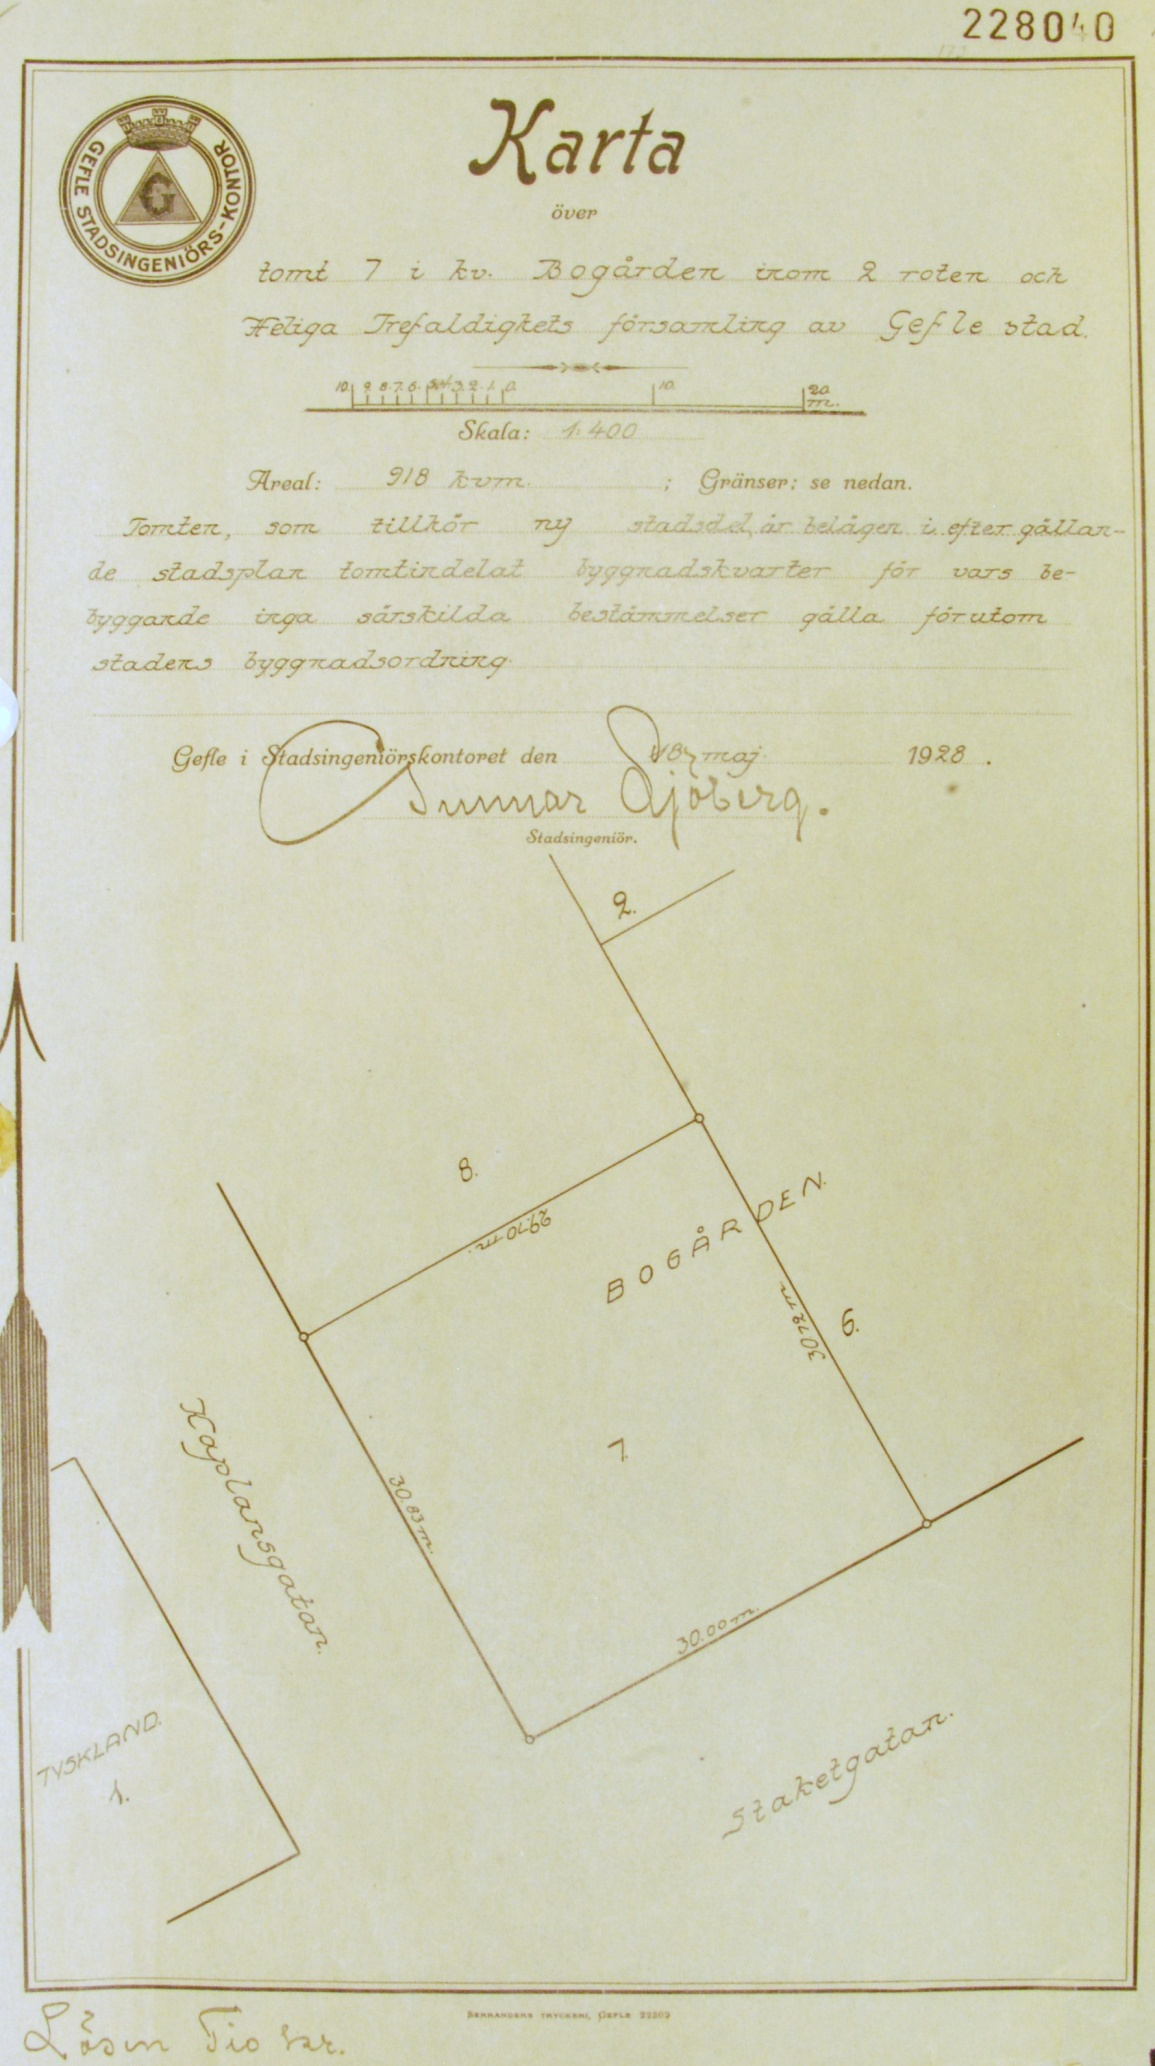 228040
GEFLE STADSINGENIÖRS-KONTOR
G
Karta
över
tomt 7 i kv. Bogården inom 2 roten och
Heliga Trefaldighets församling av Gefle stad.
10 9. 8. 7. 6. 5. 4. 3. 2. 1. 0. 10. 20 m.
Skala: 1:400
Areal: 918 kvm. ; Gränser: se nedan.
Tomten, som tillhör ny stadsdel, är belägen i efter gällan-
de stadsplan tomtindelat byggnadskvarter för vars be-
byggande inga särskilda bestämmelser gälla förutom
stadens byggnadsordning.
Gefle i Stadsingeniörskontoret den maj 1928.
Gunnar Sjöberg.
Stadsingeniör.
2.
8.
29.70 m.
BOGÅRDEN.
30.72 m.
6.
Kaplansgatan.
7.
30.83 m.
30.00 m.
TYSKLAND.
1.
Staketgatan.
SKRANDERS TRYCKERI, GEFLE 22309
Lösen Tio kr.